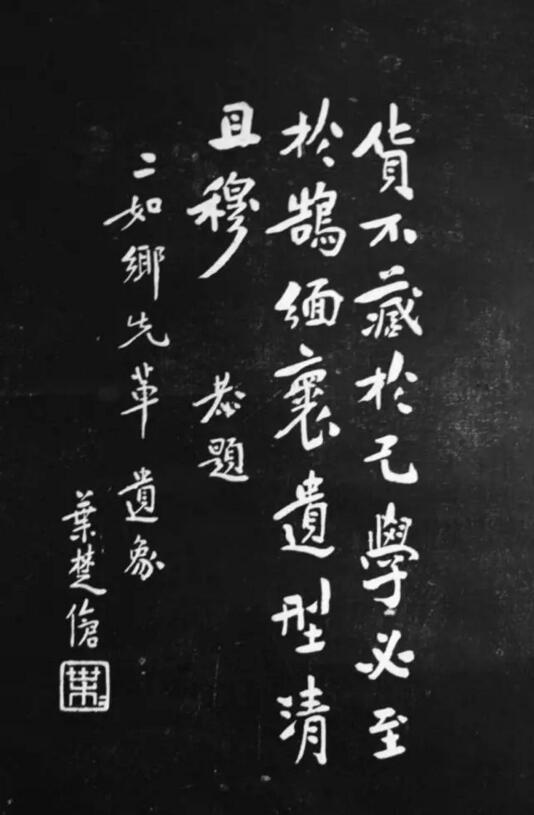 貨不藏於己學必至
於鵠緬褱遺型清
且穆 恭題
二如鄉先輩遺象
葉楚傖
葉